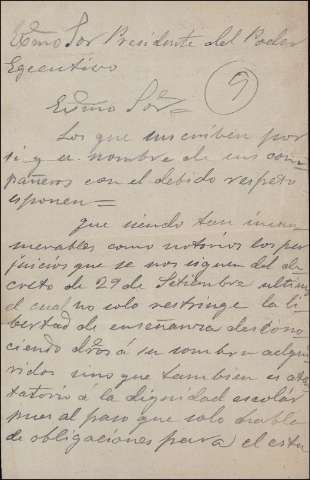 Exmo Sor Presidente del Poder
Egecutivo
9
Exmo Sor=
Los que inscriben por
si y a nombre de sus com-
pañeros con el debido respeto
esponen=
que siendo tan innu-
merables como notorios los per-
juicios que se nos siguen del de-
creto de 29 de Setiembre ultimo
el cual no solo restringe la li-
bertad de enseñanza descono-
ciendo dros á su sombra adqui-
ridos sino que tambien es aten-
tatorio a la dignidad escolar
pues al paso que solo habla
de obligaciones para el estu